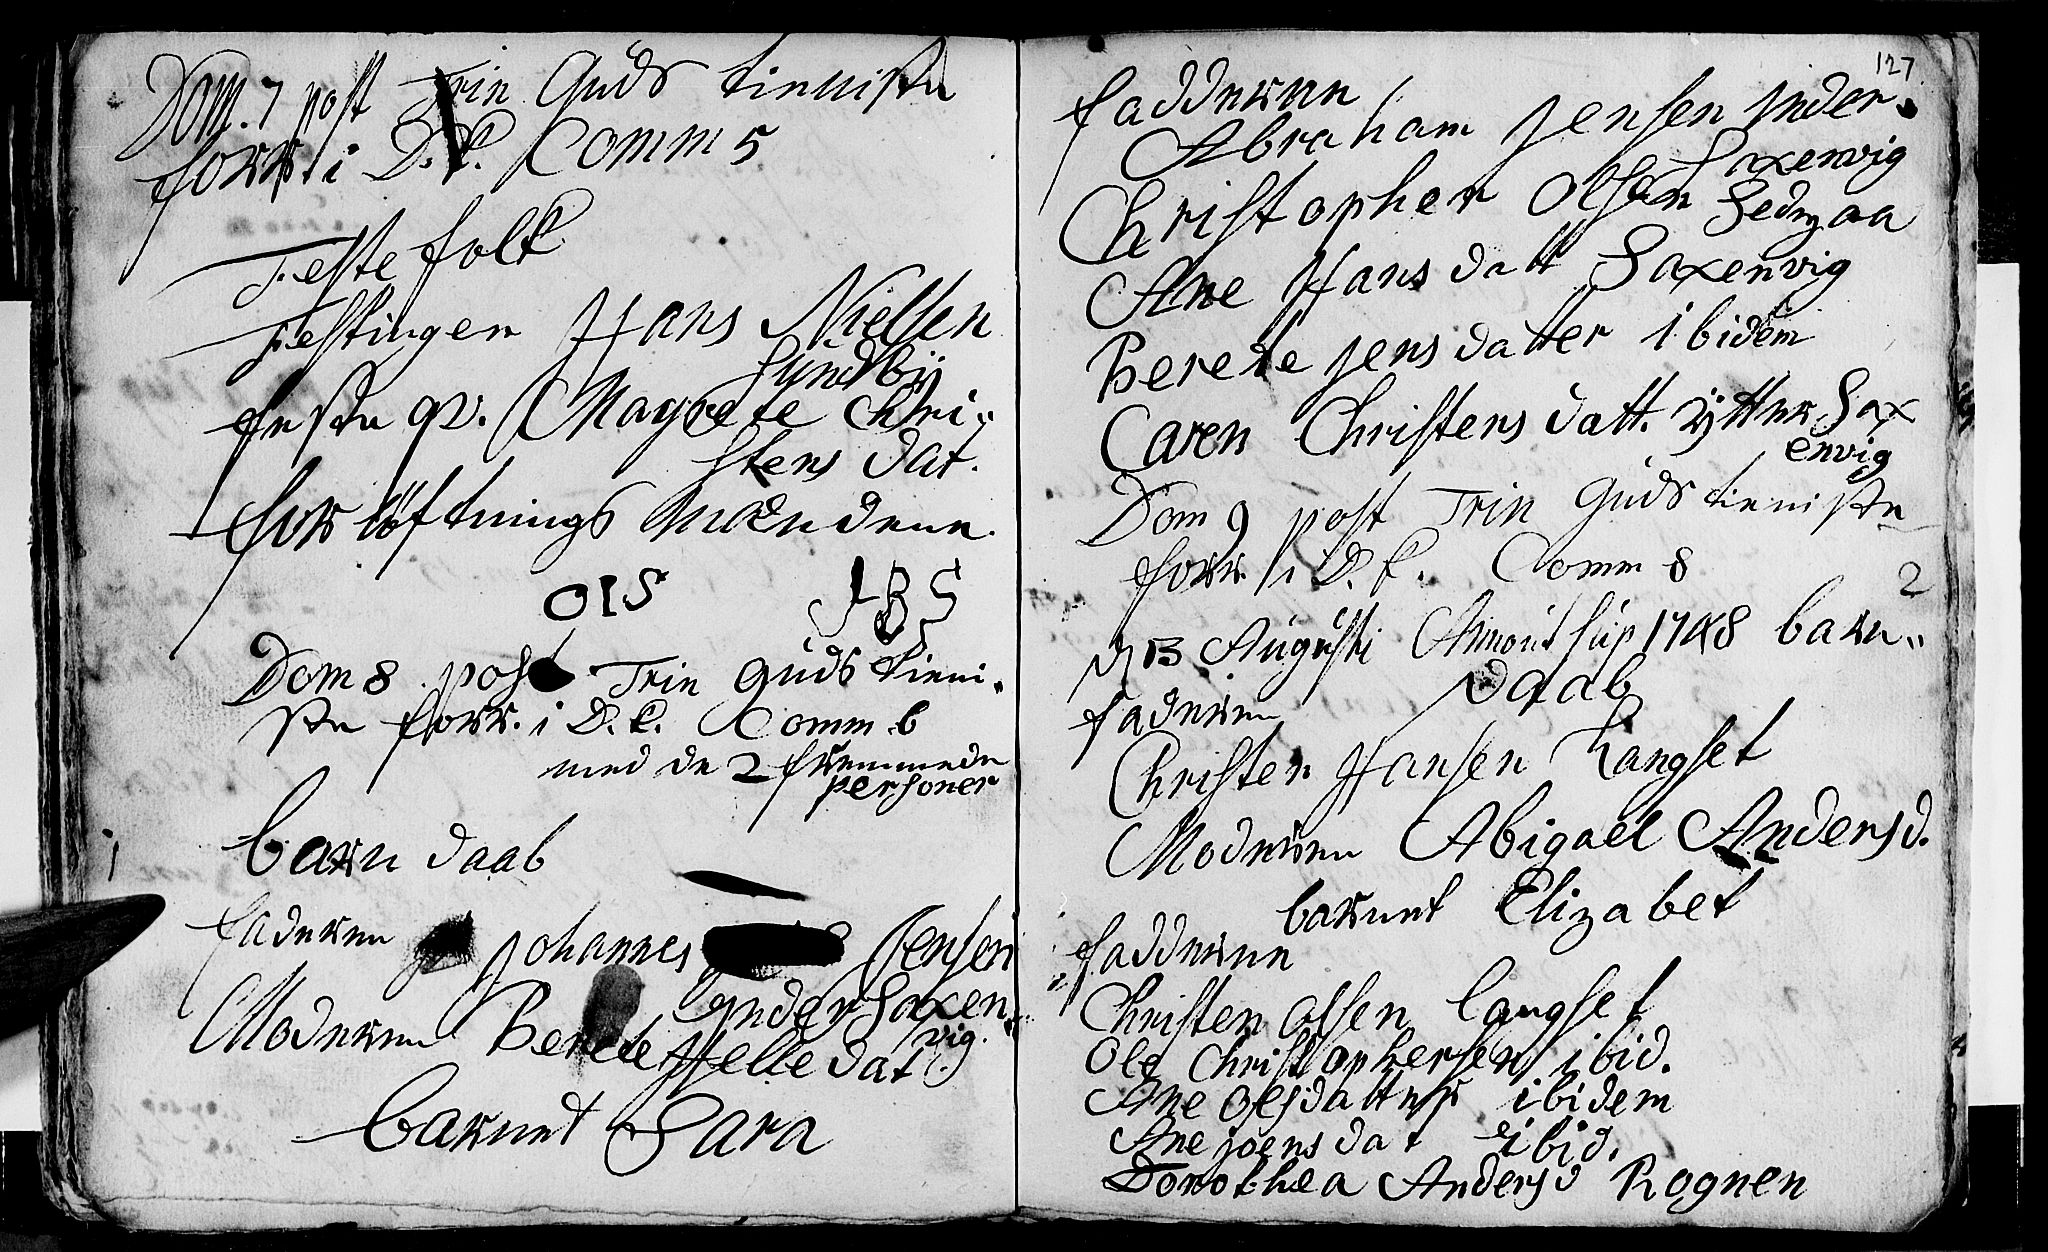 Dom. 7 post Trin Guds tieniste
forr. i D. K. Comm 5
Feste folk
Festingen Hans Nielsen
Syndbÿ
feste qv. Magrete Chri„
stens dat.
forlöftnings Mændene.
OIS IBS
Dom 8 post Trin Guds tieni„
ste forr. i D. K. Comm 6
med de 2 fremmede
personer
1
barn daab
faderen Johannes Jensen
Ynder Saxen„
vig.
Moderen Berete Helle dat
barnet Sara
127
fadderne
Abraham Jensen Ynder„
Saxenvig
Christopher Olsen
Ane Hans datt Saxenvig
Berete Jens datter ibidem
Caren Christens datt. ÿtter Sax
envig
Dom 9 post Trin Guds tieniste
forr. i D. K. Comm 8
2
d 13 Augusti 1748 barn„
daab
faderen
Christen Hansen Langset
Moderen Abigael Anders d.
barnet Elizabet
fadderne
Christen Olsen Langset
Ole Christophersen ibid.
Ane Olsdatter ibidem
Ane Joens dat ibid.
Dorothea Anders d Rognen